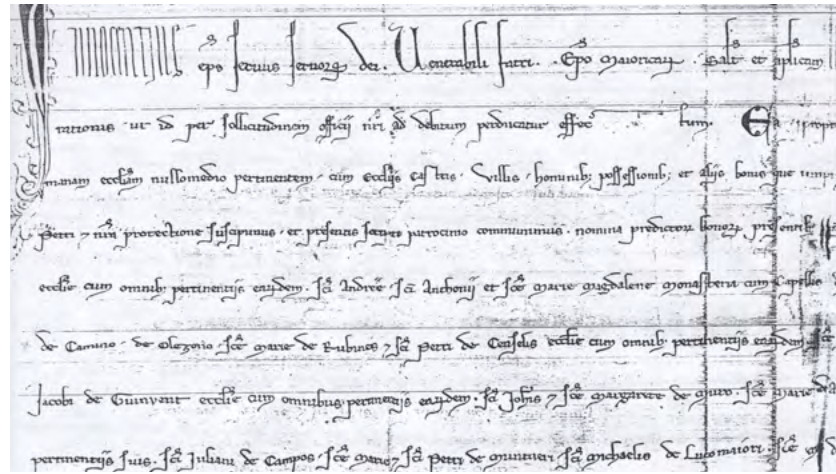 Innocentius eps servus servorum dei. Venerabili fratri. Epo Maioricarum. Salt et aplicam
rationis. ut id per sollicitudinem officii nri ad debitum perducatur effectum. Ea propter
manam eccliam nullo medio pertinentem. cum ecclijs castris. villis. hominibus possessionibus et alijs bonis que
Petri et nra protectione suscipimus. et presentis scripti patrocinio communimus. nomina predictorum bonorum presentibus
ecclie cum omnibus pertinentijs earumdem. sci Andree. sci Anthonij et sce Marie Magdalene monasteria cum Capellis
de Camino. de Olozonio. sce Marie de Rubines et sci Petri de ecclie cum omnibus pertinentijs earumdem. sce
Jacobi de Guinyent ecclie cum omnibus pertinentijs earumdem. sci Johis et sce Margarete de Muro. sce Marie
pertinentijs suis. sci Juliani de Campos. sce Marie et sci Petri de sci Michaelis de Lucomaiori. sce